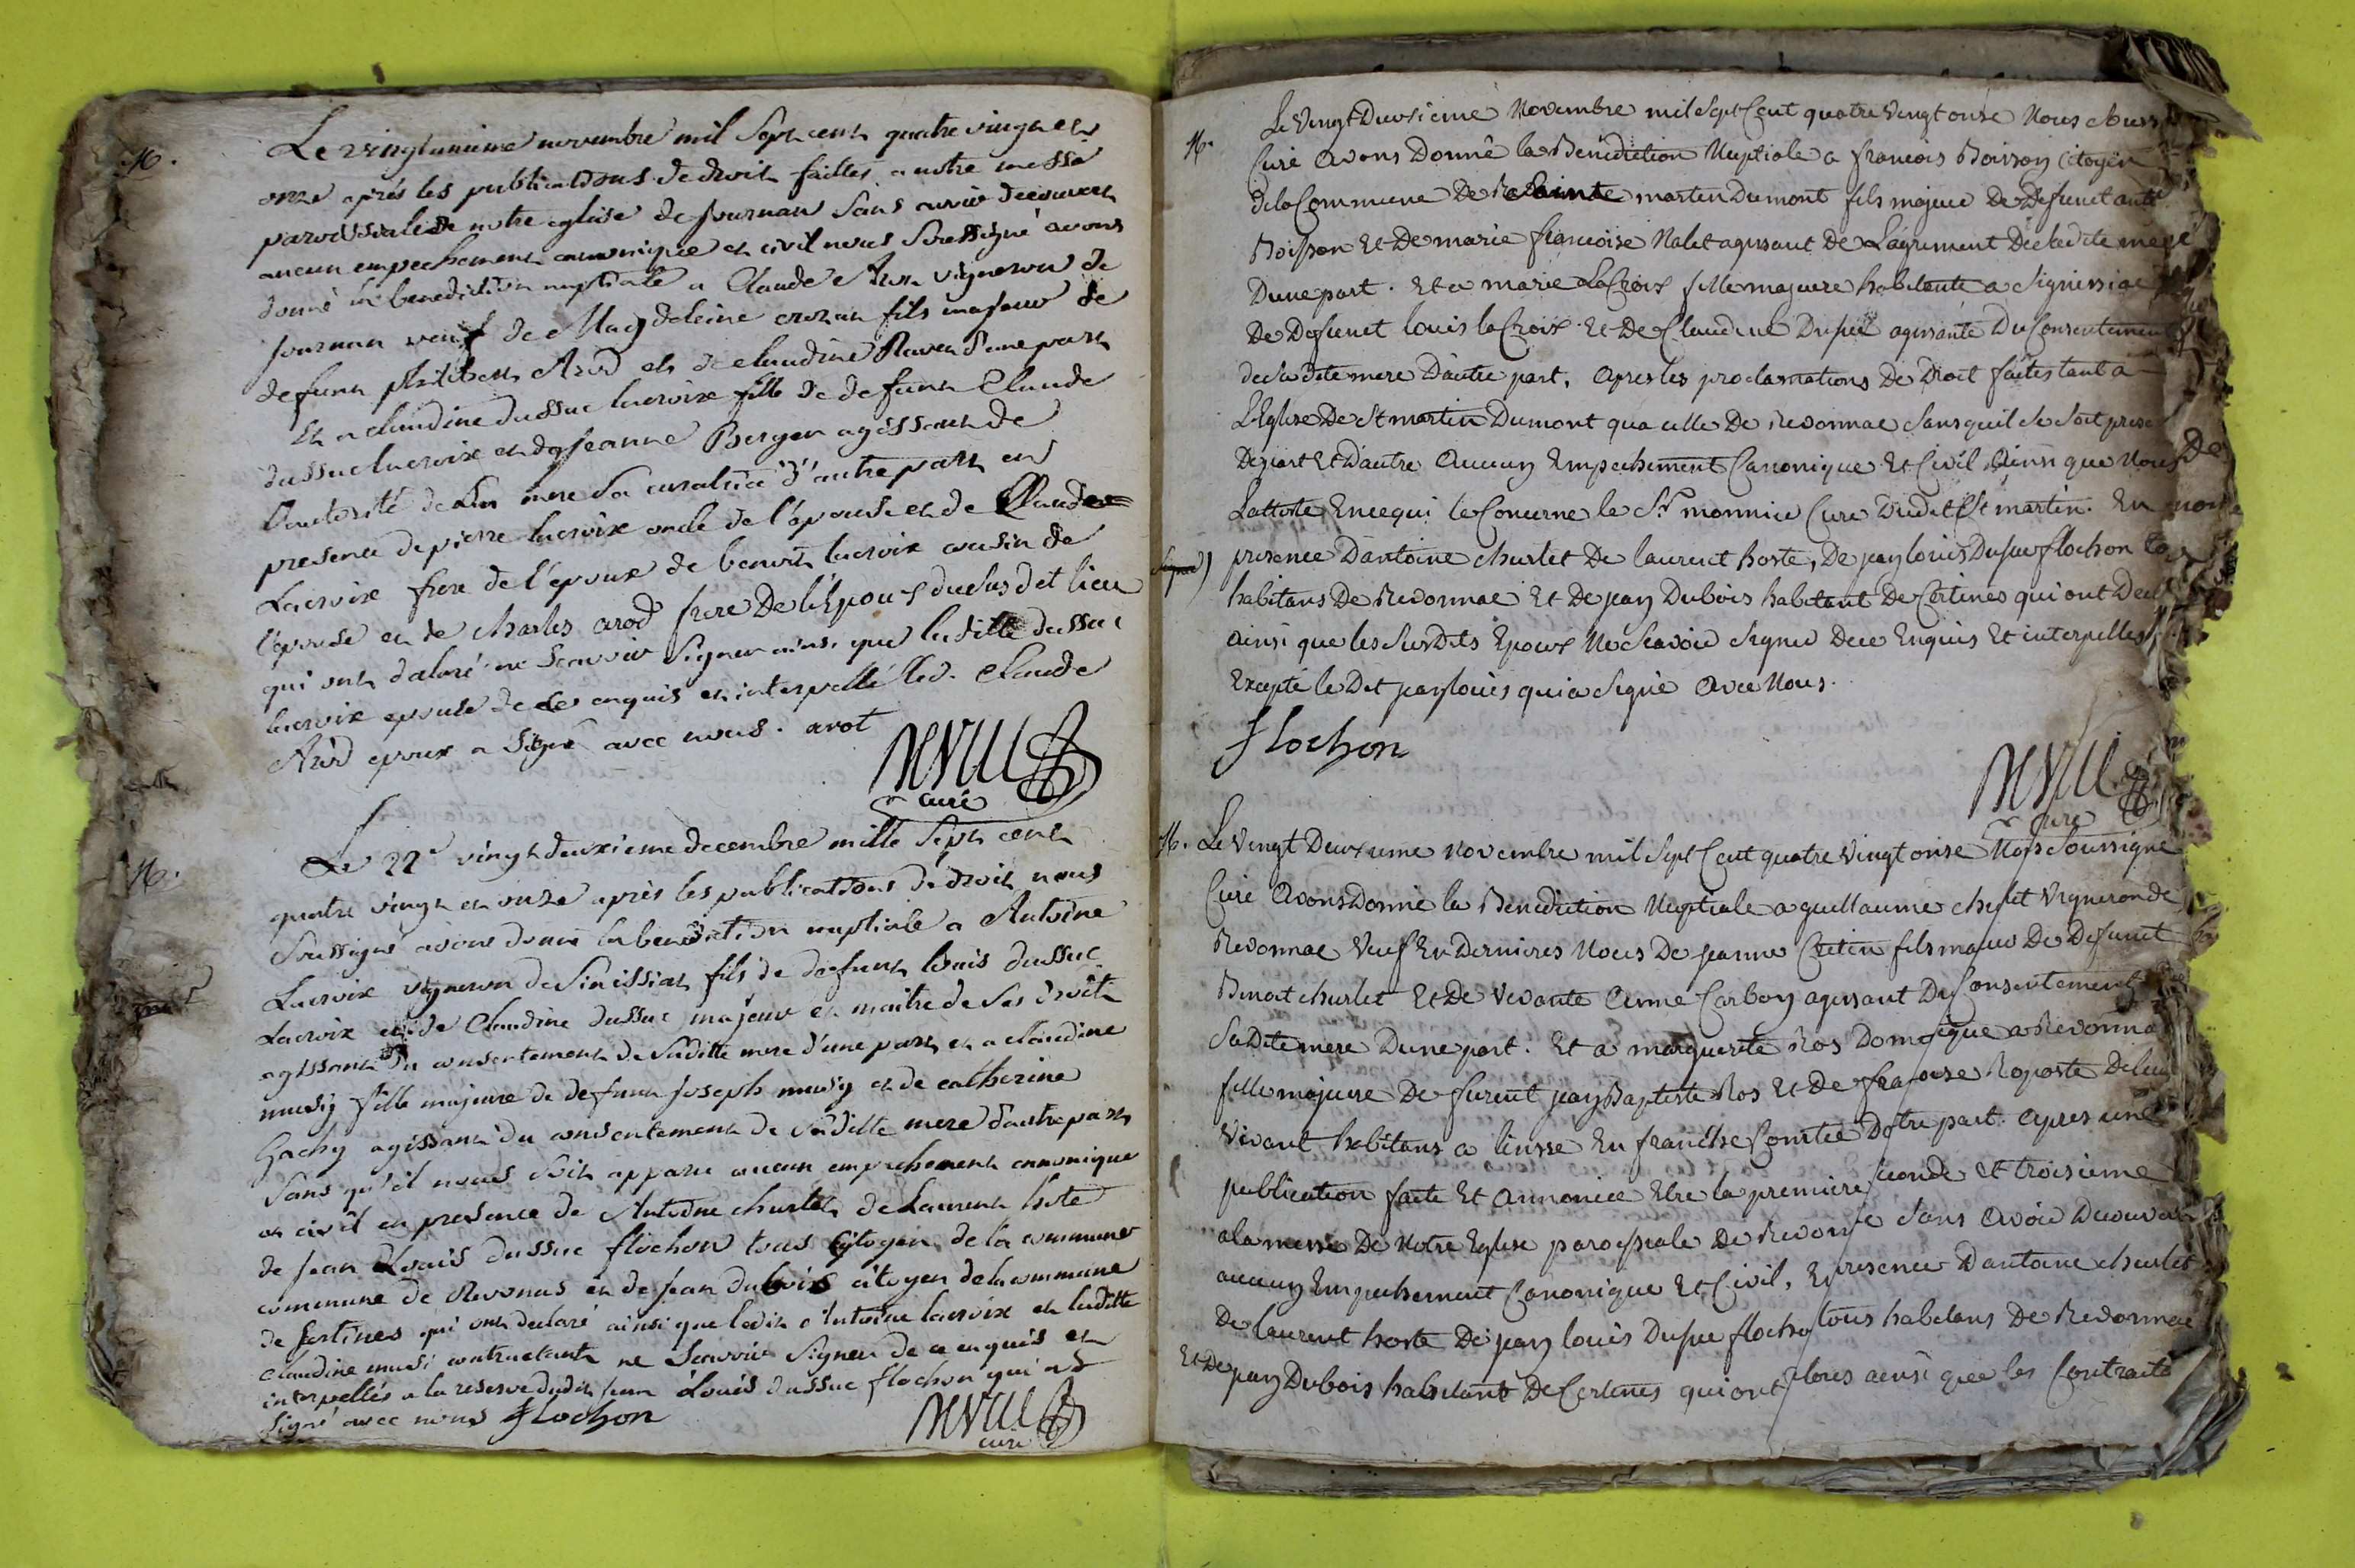 M.
Le vingtunieme novembre mil sept cent quatre vingt et
onze après les publications de droit faittes a notre messe
paroissiale de notre eglise de Journan sans avoir decouvert
aucun empechement canonique et civil nous soussigné avons
donné la benediction nuptiale a Claude Arod vigneron de
Journan veuf de Magdeleine fils majeur de
defunt philibert Arod et de claudine Ravet d'une part
Et a claudine dussuc lacroix fille de defunt Claude
dussuc lacroix et de Jeanne Berger agissant de
l'autorité de sa mere sa curatrice d'autre part en
presence de pierre lacroix oncle de l'epouse et de Claude
Lacroix frere de l'epouse de benoit lacroix cousin de
l'epouse et de charles arod frere De l'Epoux dudus dit lieu
qui ont declaré ne scavoir signer ainsi que laditte dussuc
lacroix epouse de ce enquis et interpellé led. Claude
Arod epoux a signé avec nous. arot
curé
M.
Le 22e vingt deuxieme decembre mille sept cent
quatre vingt et onze après les publications de droit nous
soussigné avons donné la benediction nuptiale a Antoine
Lacroix vigneron de Sinissiat fils de defunt louis dussuc
Lacroix et de Claudine dussuc majeur et maitre de ses droits
agissant du consentement de saditte mere d'une part et a claudine
musiy fille majeure de defunt Joseph musiy et de catherine
Gachy agissant du consentement de saditte mere d'autre part
sans qu'il nous soit apparu aucun empechement canonique
et civil en presence de Antoine churlet de Laurent hote
de Jean Louis dussuc flochon tous citoyen de la commune
commune de Revonas et de Jean dubois citoyen de la commune
de sertines qui ont declaré ainsi que ledit Antoine lacroix et laditte
claudine musi contractants ne scavoir signer de ce enquis et
interpellés a la reserve dudit Jean Louis dussuc flochon qui a
signé avec nous flochon
curé
M.
Le Vingt Deuxieme Novembre mil Sept Cent quatre Vingt onse Nous
Curé Avons Donné la Benediction Nuptiale a francois Boisson Citoyen
de la Commune De Sainte marten Dumont fils majeur De Defunct
Boisson Et De marie francoise Nalet agissant De L'agrement De ladite mere
Dune part. Et a marie LaCroix fille majeure habitante a
De Defunct louis laCroix Et De Claudine agissante Du Consentement
de sadite mere D'autre part, Apres les proclamations De Droit faites tant a
L'Eglise De St martin Dumont qua celle De Revonnac Sans quil se soit
Depart Et Dautre Aucun Empechement Canonique Et Civil, Ainsi que Nous De
Latteste Encequi le Concerne le Sr monnier Curé Dudit St martin. En
presence D'antoine churlet De laurent hoste, De jean louis Flochon
habitans De Revonnac Et De jean Dubois habitant De Certines qui ont
ainsi que les Susdits Epoux Ne Scavoir Signer Dece Enquis Et interpelles
Excepté le Dit jean louis qui a Signé Avec Nous.
flochon
Curé
M. Le Vingt Deuxieme Novembre mil Sept Cent quatre Vingt onse Nous Soussigné
Curé Avons Donné la Benediction Nuptiale a guillaume Vigneron de
Revonnac Veuf En Dernieres Noces De jeanne Cretin fils majeur De Defunct
Benoit churlet Et De Vivante Anne Carbon agissant Du Consentement
Sadite mere Dune part. Et a marguerite Ros Domestique a
fille majeure De funct jean Baptiste Ros Et De Roposte
Vivant habitans a En franche Comtée part. apres une
publication faite Et Annoncée Etre la premiere Et troisieme
a la messe De Notre Eglise paroissiale De Sans Avoir
aucun Empechement Canonique Et Civil, D'antoine churlet
De laurent hoste De jean louis tous habitans De Revonnac
Et De jean Dubois habitant De Certines qui ont ainsi que les Contracts